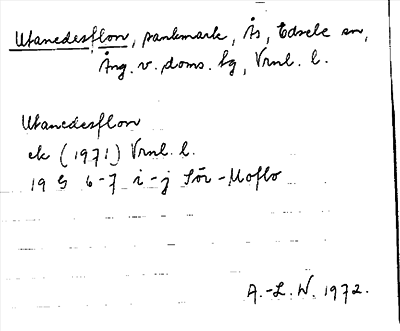 Utanedesflon, sankmark, Ås, Edsele sn,
Ång. v. doms. lg, Vrnl. l.
Utanedesflon
ek (1971) Vrnl. l.
19 G 6-7 i-j Sör-Moflo
A.-L. W. 1972.